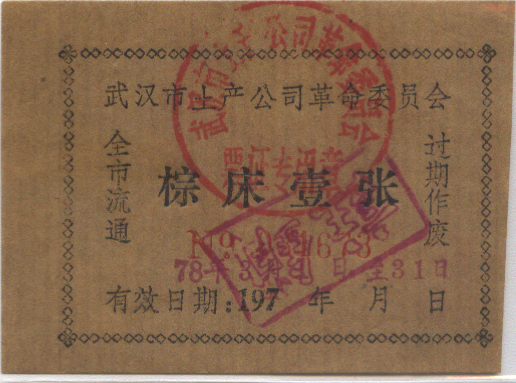 武汉市土产公司革命委员会
全市流通
棕床壹张
过期作废
武汉市土产公司革命委员会
票证专用章
No
78年3月 日至31日
有效日期:197 年 月 日